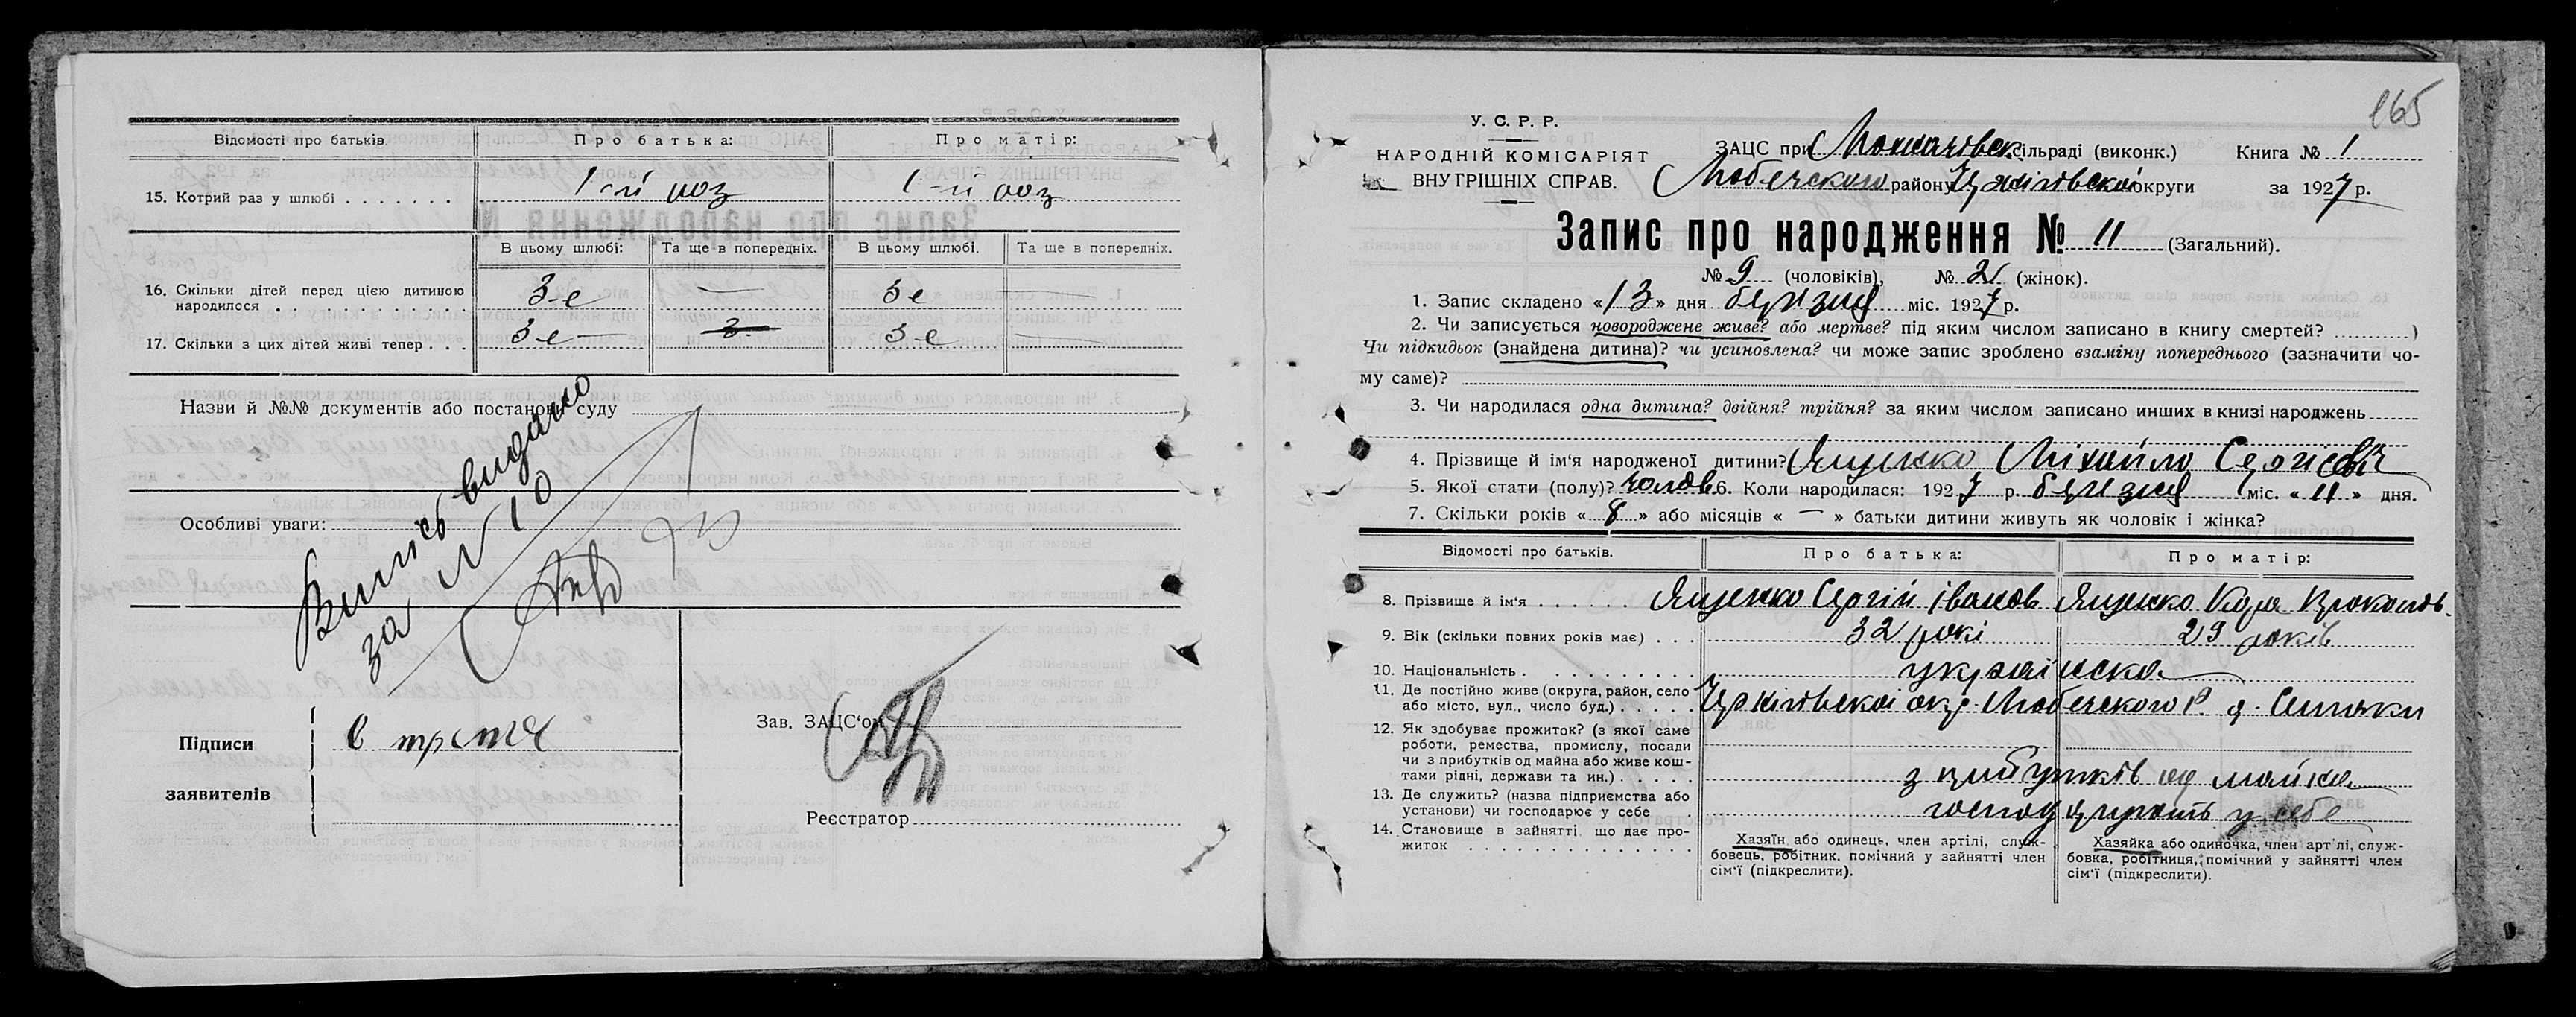 Відомості про батьків. Про батька: Про матір:
15. Котрий раз у шлюбі . . . . . . . 1-й раз 1-й раз
В цьому шлюбі: Та ще в попередніх. В цьому шлюбі. Та ще в попередніх.
16. Скільки дітей перед цією дитиною
народилося . . . . . . . . . . . . 3-е — 3е —
17. Скільки з цих дітей живі тепер . . . 3е — 3е —
Назви й №№ документів або постанови суду
Випись видано
за № 10
Особливі уваги:
Підписи
заявителів
Зав. ЗАЦС'ом
Реєстратор
165
У. С. Р. Р.
НАРОДНІЙ КОМІСАРІЯТ
ВНУТРІШНІХ СПРАВ.
ЗАЦС при сільраді (виконк.) Книга № 1
Любечского району Чернігівскоі округи за 1927 р.
Запис про народження № 11 (Загальний).
№ 9 (чоловіків), № 2 (жінок).
1. Запис складено «13» дня березня міс. 1927 р.
2. Чи записується новороджене живе? або мертве? під яким числом записано в книгу смертей? )
Чи підкидьок (знайдена дитина)? чи усиновлена? чи може запис зроблено взаміну попереднього (зазначити чо-
му саме)?
3. Чи народилася одна дитина? двійня? трійня? за яким числом записано инших в книзі народжень
4. Прізвище й ім'я народженої дитини? Ященко Міхайло Сергієвіч
5. Якої стати (полу)? чолов. 6. Коли народилася: 1927 р. березня міс. «11» дня.
7. Скільки років «8» або місяців «—» батьки дитини живуть як чоловік і жінка?
Відомості про батьків. Про батька: Про матір:
8. Прізвище й ім'я . . . . . . Ященко Сергій Іванов Ященко
9. Вік (скільки повних років має) . . . 32 рокі 29 років
10. Національність . . . . . . . . . . українска
11. Де постійно живе (округа, район, село
або місто, вул., число буд.) . . . . . Чернігівскоі окр. Любечского Р.
12. Як здобуває прожиток? (з якої саме
роботи, ремества, промислу, посади
чи з прибутків од майна або живе кош-
тами рідні, держави та ин.) . . . . . з прибутків од майна
13. Де служить? (назва підприємства або
установи) чи господарює у себе у себе
14. Становище в зайнятті, що дає про-
житок . . . . . . . . . . . . . .
Хазяїн або одинець, член артілі, служ-
бовець, робітник, помічний у зайнятті член
сім'ї (підкреслити).
Хазяйка або одиночка, член арт'лі, служ-
бовка, робітниця, помічний у зайнятті член
сім'ї (підкреслити).